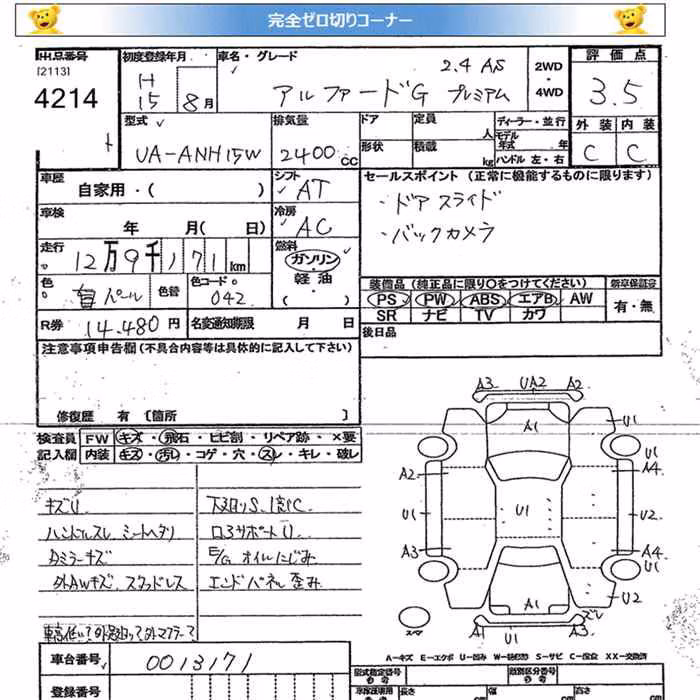 完全ゼロ切りコーナー
出品番号 初度登録年月 車名・グレード 2WD・4WD 評価点
[2113] H15 8月 2.4 AS
4214 アルファードG プレミアム 3.5
型式 排気量 ドア 定員 人 ディーラー・並行 外装 内装
UA-ANH15W 2400cc 形状 積載 kg モデル年式 年 ハンドル 左・右 C C
車歴 自家用・( ) シフト AT セールスポイント (正常に機能するものに限ります)
車検 年 月( 日) 冷房 AC ・ドアスライド
・バックカメラ
走行 12万9千171km 燃料 ガソリン・軽油・( )
色 パール 色替 色コード 042
装備品 (純正品に限り〇をつけてください) 新車保証書
PS PW ABS エアB AW 有・無
SR ナビ TV カワ
R券 14,480円 名変通知期限 月 日 後日品
注意事項申告欄 (不具合内容等は具体的に記入して下さい)
修復歴 有 〔箇所 〕
検査員 FW キズ・飛石・ヒビ割・リペア跡・×要
記入欄 内装 キズ・汚レ・コゲ・穴・スレ・キレ・破レ
キズU 下廻りS
ハンドルスレ シートヘタリ コアサポートU
ミラーキズ E/G オイルにじみ
外AWキズ、スタッドレス エンドパネル歪み
A3 UA2 A2
A1 U1
A2 A4
U1 U1 U2
A3 A4
U1
A1 U2
スレ
スペア A1 U1 A3
A-キズ E-エクボ U-凹み W-波 S-サビ C-腐食 XX-交換済
車台番号 0013171
登録番号 型式指定番号 類別区分番号
長さ cm 幅 cm 高さ cm